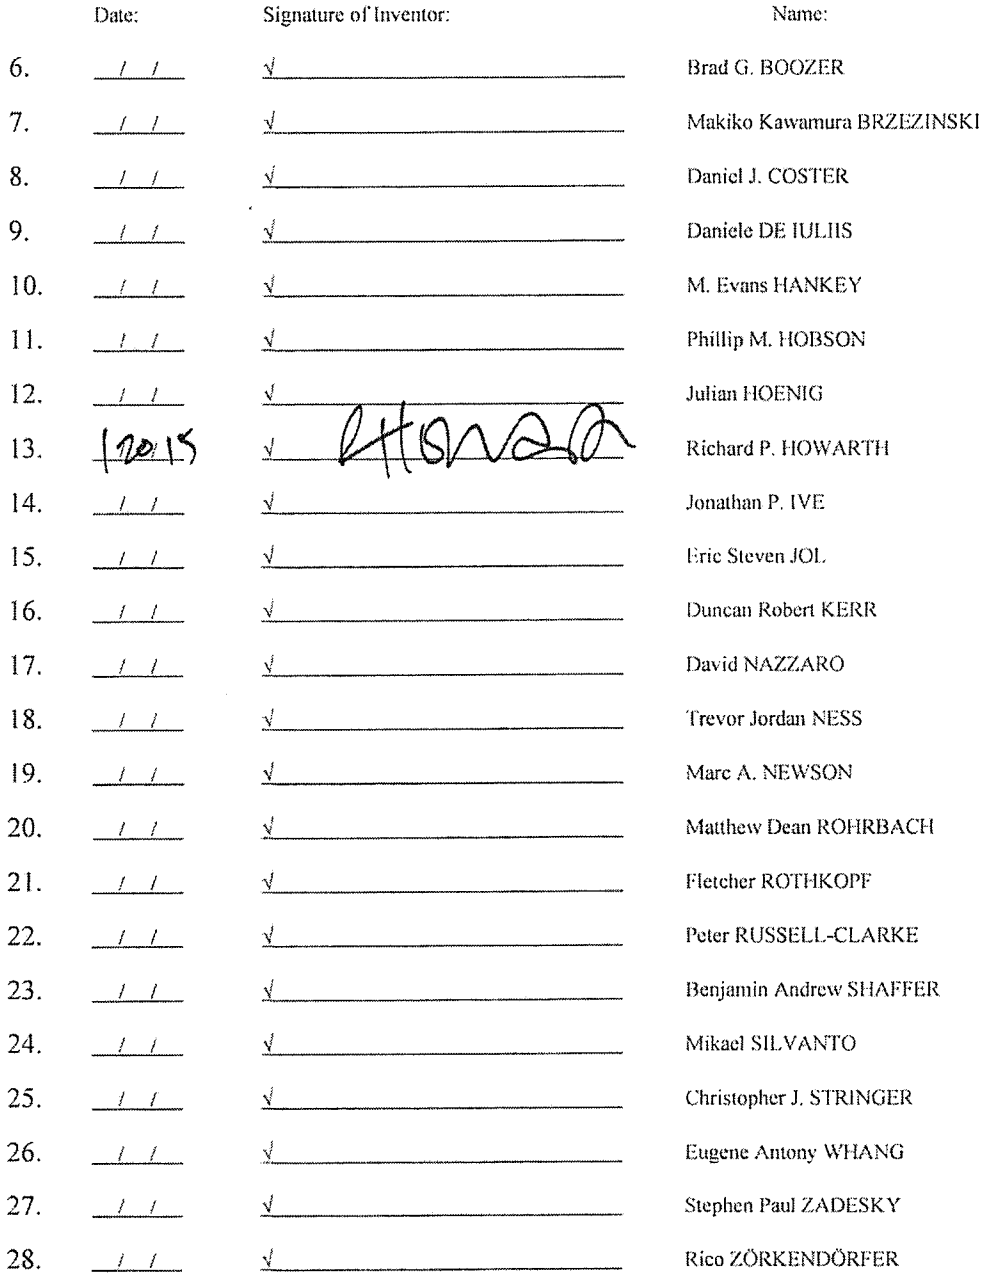 Date: Signature of Inventor: Name:
6. / / √ Brad G. BOOZER
7. / / √ Makiko Kawamura BRZEZINSKI
8. / / √ Daniel J. COSTER
9. / / √ Daniele DE IULIIS
10. / / √ M. Evans HANKEY
11. / / √ Phillip M. HOBSON
12. / / √ Julian HOENIG
13. 1/20/15 √ Richard P. HOWARTH
14. / / √ Jonathan P. IVE
15. / / √ Eric Steven JOL
16. / / √ Duncan Robert KERR
17. / / √ David NAZZARO
18. / / √ Trevor Jordan NESS
19. / / √ Marc A. NEWSON
20. / / √ Matthew Dean ROHRBACH
21. / / √ Fletcher ROTHKOPF
22. / / √ Peter RUSSELL-CLARKE
23. / / √ Benjamin Andrew SHAFFER
24. / / √ Mikael SILVANTO
25. / / √ Christopher J. STRINGER
26. / / √ Eugene Antony WHANG
27. / / √ Stephen Paul ZADESKY
28. / / √ Rico ZÖRKENDÖRFER